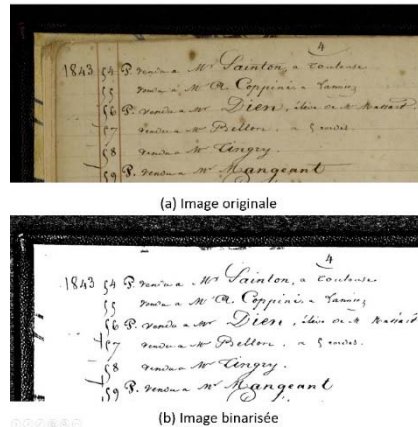 4
1843 54 P. vendu a Mr Sainton, a Toulouse
55 vendu a Mr A. Coppiné a
56 P. vendu a Mr Dien, élève de Mr Massart
57 vendu a Mr Bellon, a Gendes.
58 vendu a Mr Tingry.
59 P. vendu a Mr Mangeant
(a) Image originale
4
1843 54 P. vendu a Mr Sainton, a Toulouse
55 vendu a Mr A. Coppiné a
56 P. vendu a Mr Dien, élève de Mr Massart
57 vendu a Mr Bellon, a
58 vendu a Mr Tingry.
59 P. vendu a Mr Mangeant
(b) Image binarisée